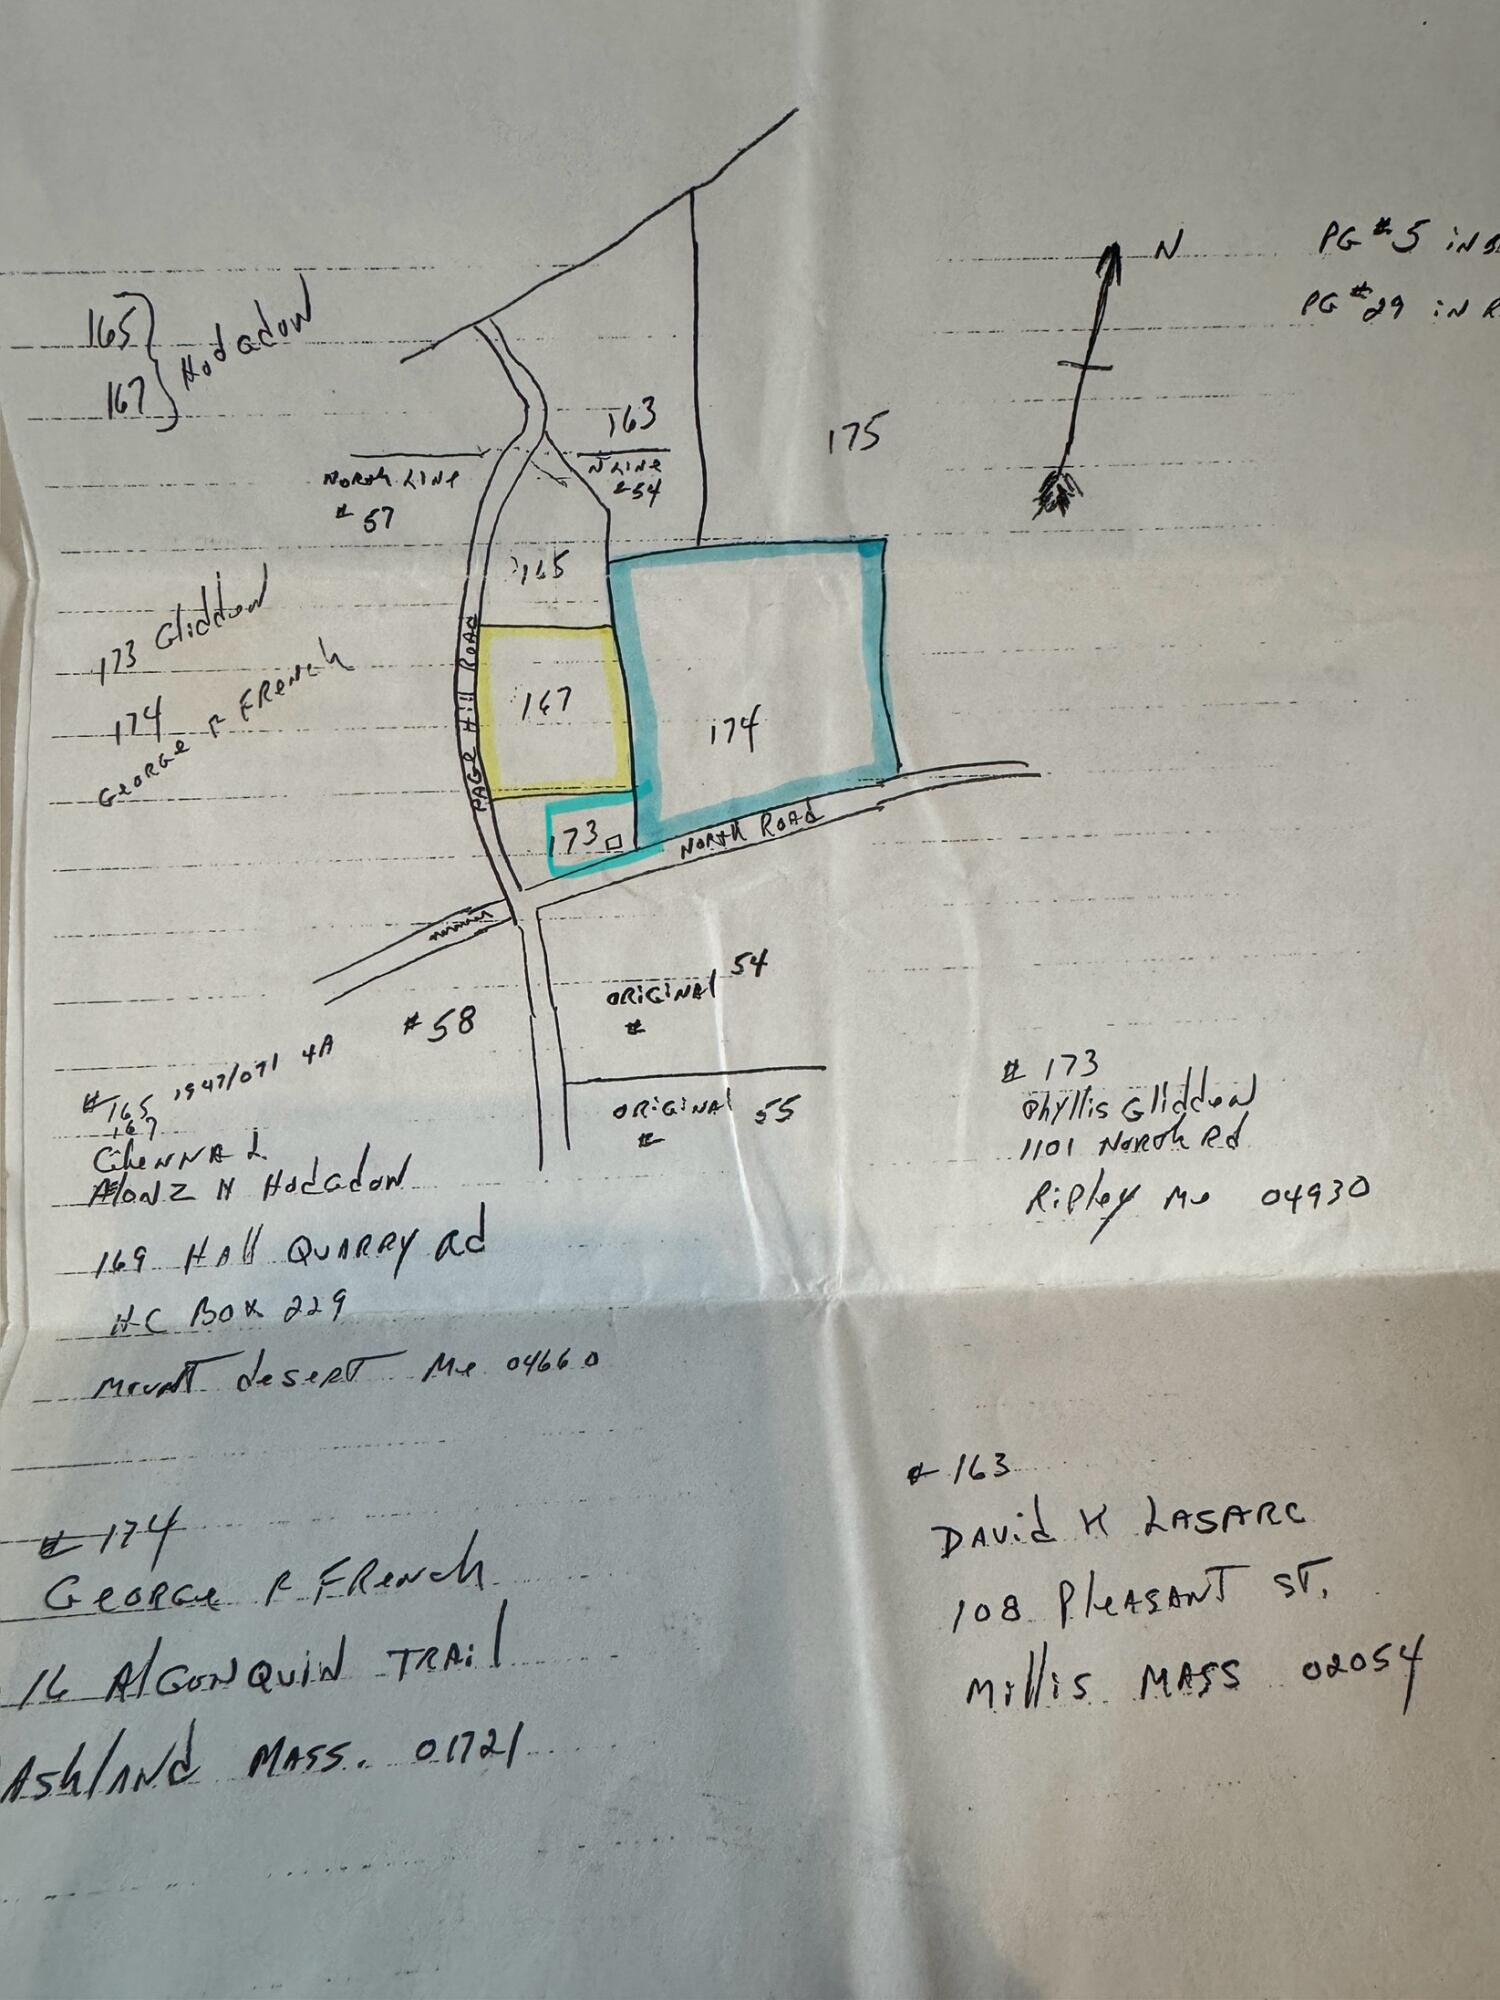 N
PG #5 in
PG #29 in
165
167
Hodgdon
163
175
North Line
# 57
N Line
#54
165
173 Gliddon
174
George R French
Page Hill Road
167
174
173
North Road
Original 54
#
#58
Original 55
#
#165 1947/071 4A
167
Glenna L
Alonz N Hodgdon
169 Hall Quarry Rd
HC Box 229
Mount desert Me 04660
# 173
Phyllis Gliddon
1101 North Rd
Ripley Me 04930
# 174
George R French
16 Algonquin Trail
Ashland Mass. 01721
# 163
David K Lasarc
108 Pleasant St.
Millis Mass 02054